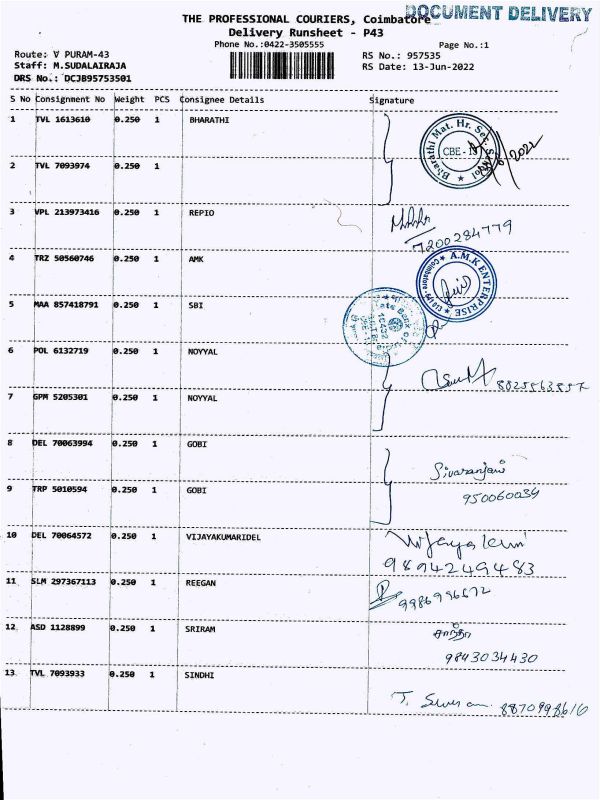 DOCUMENT DELIVERY
THE PROFESSIONAL COURIERS, Coimbatore
Delivery Runsheet - P43
Phone No.:0422-3505555
Page No.:1
Route: V PURAM-43
RS No.: 957535
Staff: M.SUDALAIRAJA
RS Date: 13-Jun-2022
DRS No.: DCJB95753501
S No Consignment No Weight PCS Consignee Details Signature
1 TVL 1613610 0.250 1 BHARATHI
Bharathi Mat. Hr. Sec. School
CBE -
2022
2 TVL 7093974 0.250 1
3 VPL 213973416 0.250 1 REPIO
7200284779
4 TRZ 50560746 0.250 1 AMK
A.M.K ENTERPRISE
5 MAA 857418791 0.250 1 SBI
6 POL 6132719 0.250 1 NOYYAL
7 GPM 5205301 0.250 1 NOYYAL
8 DEL 70063994 0.250 1 GOBI
Sivaranjani
9 TRP 5010594 0.250 1 GOBI
950060034
10 DEL 70064572 0.250 1 VIJAYAKUMARIDEL
9894249483
11 SLM 297367113 0.250 1 REEGAN
12 ASD 1128899 0.250 1 SRIRAM
சாந்தா
9843034430
13 TVL 7093933 0.250 1 SINDHI
8870998616